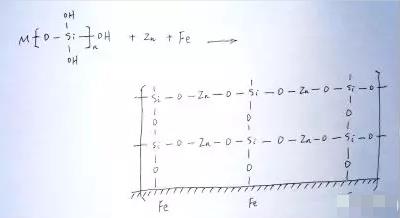 OH
M[O-Si-]nOH + Zn + Fe ⟶
OH
- Si - O - Zn - O - Si - O - Zn - O - Si - O -
O O O
- Si - O - Zn - O - Si - O - Zn - O - Si - O -
O O O
Fe Fe